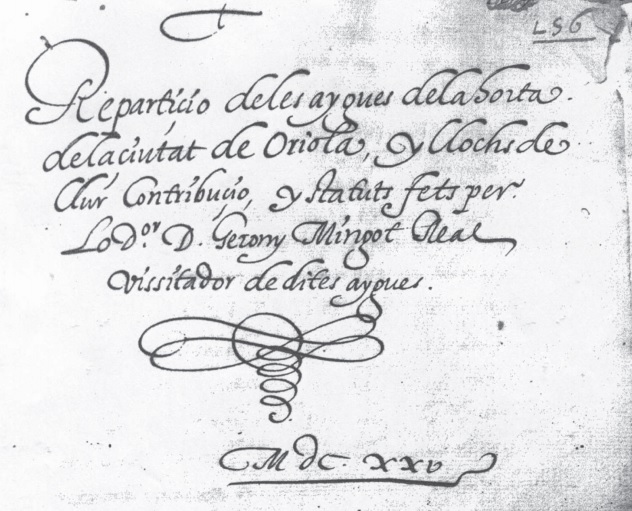 LS6
Repartiçio deles aygues dela horta.
dela ciutat de Oriola, y llochs de
llur Contribuçio, y statuts fets per
Lo D.or D. Gerony Mingot Real
Vissitador de dites aygues.
MdC. xxv